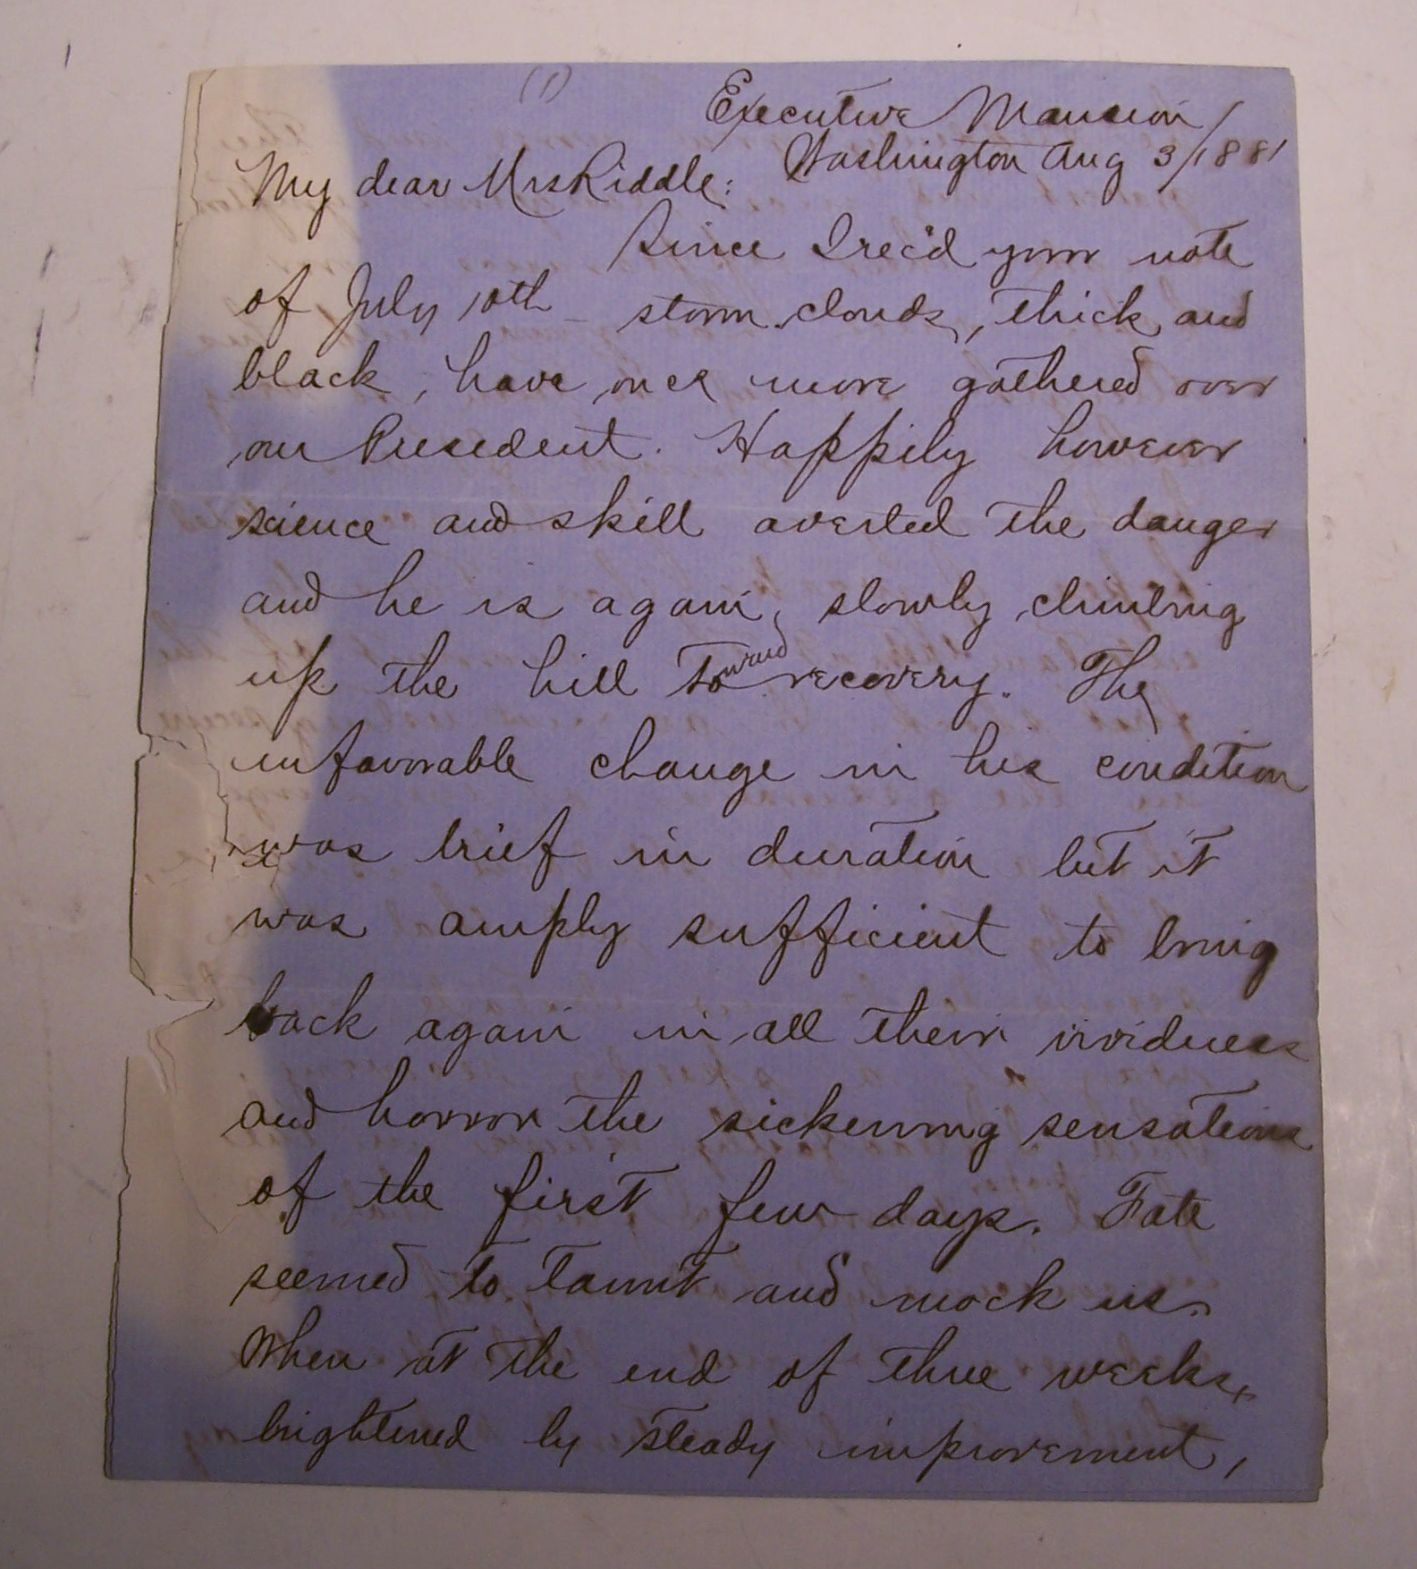 (1)
Executive Mansion
Washington Aug 3/1881
My dear Mrs Riddle:
Since I rec'd your note
of July 10th - storm clouds, thick and
black, have once more gathered over
our President. Happily however
science and skill averted the danger
and he is again, slowly climbing
up the hill toward recovery. The
unfavorable change in his condition
was brief in duration but it
was amply sufficient to bring
back again in all their vividness
and horror the sickening sensations
of the first few days. Fate
seemed to taunt and mock us.
When at the end of three weeks,
brightened by steady improvement,